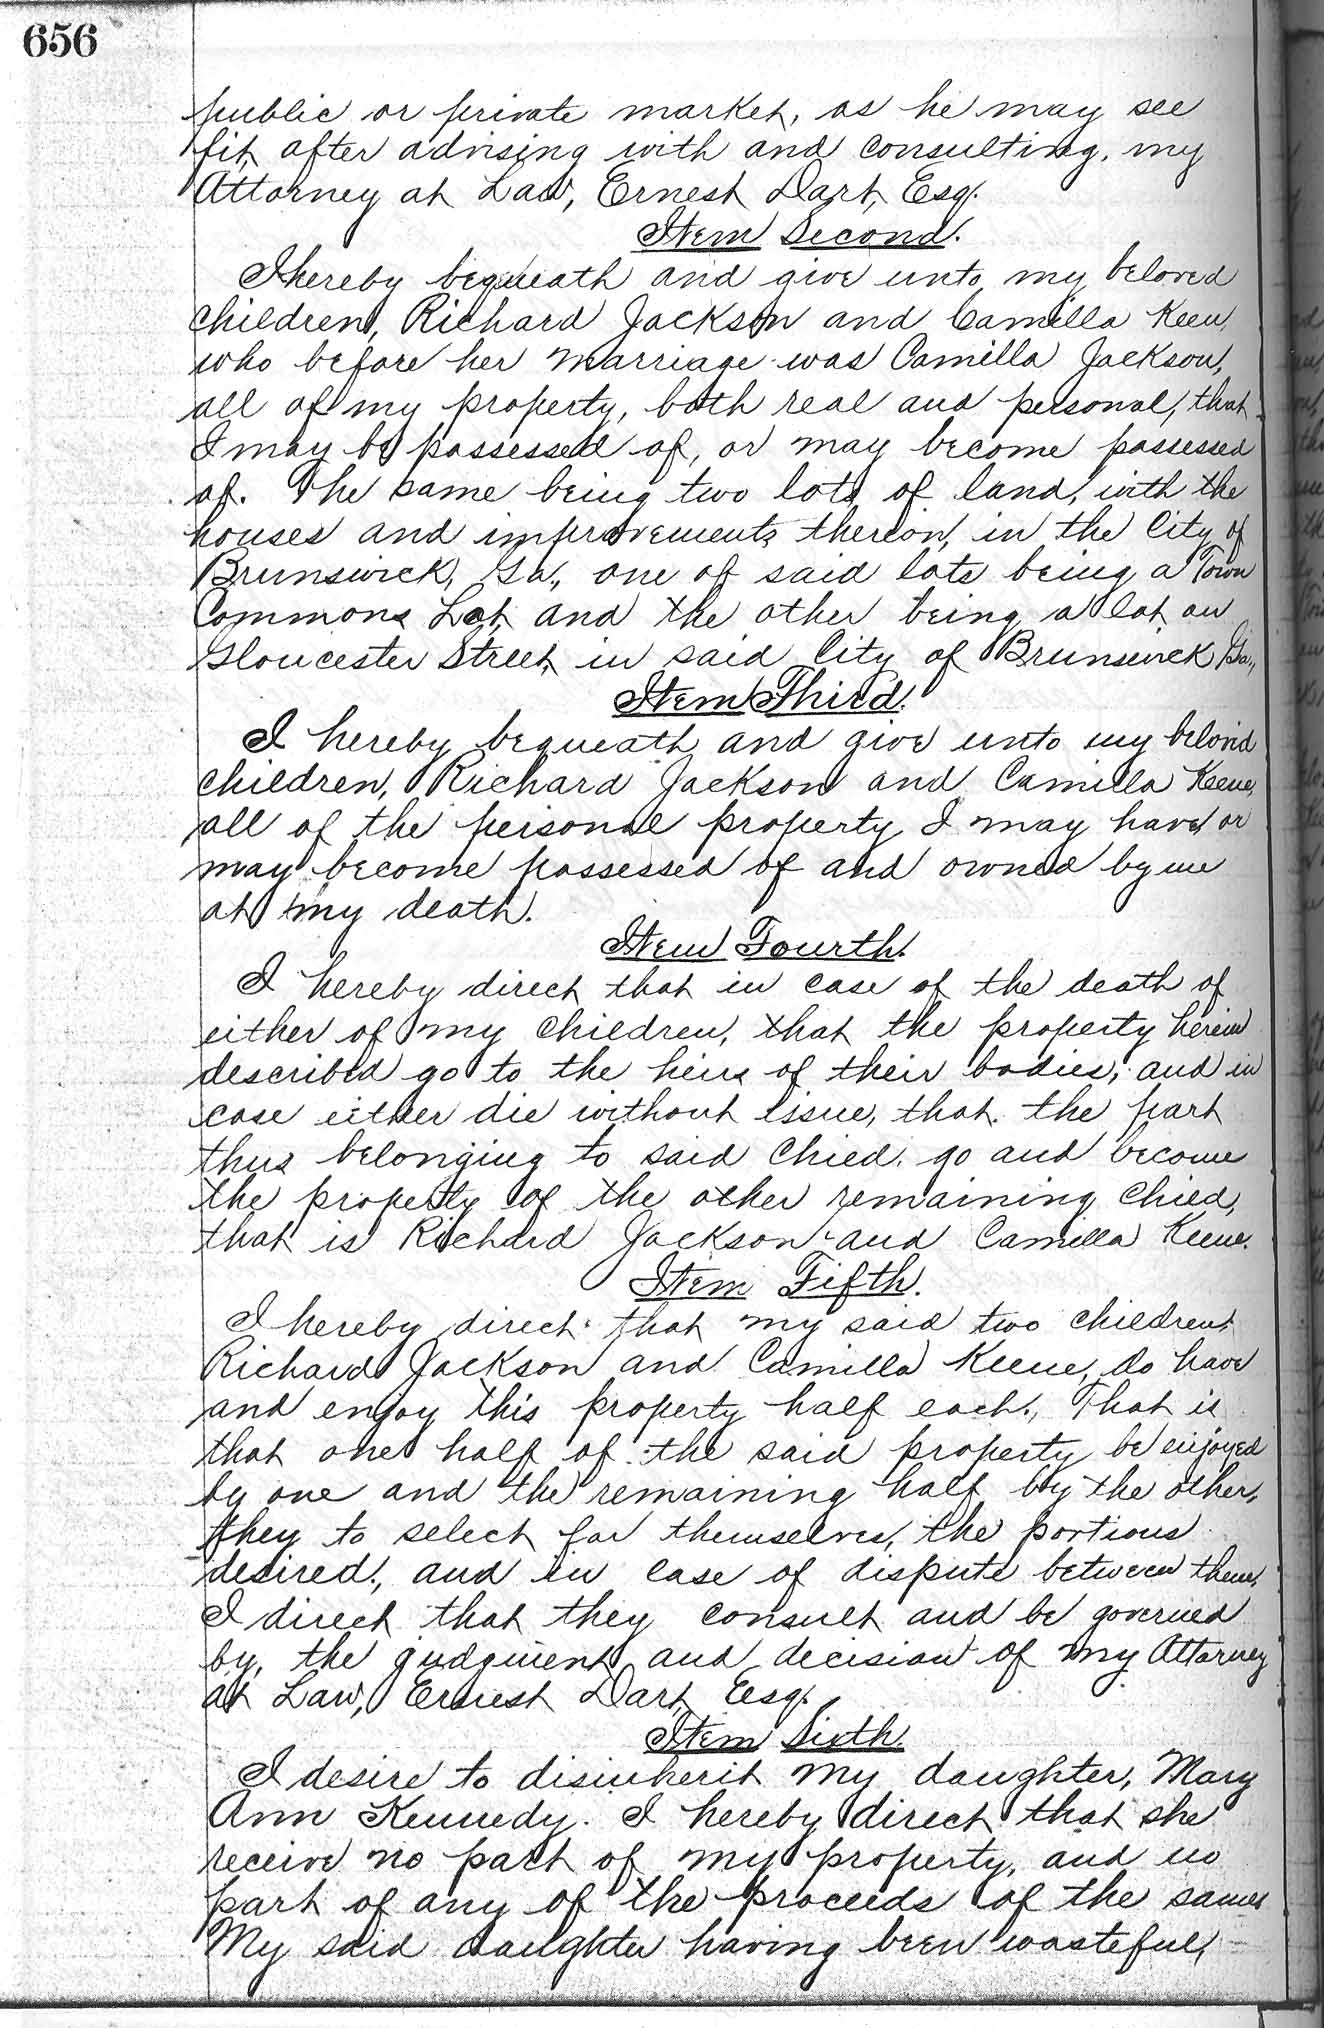 656
public or private market, as he may see
fit, after advising with and consulting, my
Attorney at Law, Ernest Dart, Esq.
Item Second.
I hereby bequeath and give unto my beloved
children, Richard Jackson and Camilla Keen,
who before her marriage was Camilla Jackson,
all of my property, both real and personal, that
I may be possessed of, or may become possessed
of. The same being two lots of land, with the
houses and improvements thereon, in the City of
Brunswick, Ga., one of said lots being a Town
Commons Lot, and the other being a lot on
Gloucester Street, in said City of Brunswick, Ga.,
Item Third.
I hereby bequeath and give unto my beloved
children, Richard Jackson and Camilla Keene,
all of the personal property I may have or
may become possessed of and owned by me
at my death.
Item Fourth.
I hereby direct that in case of the death of
either of my children, that the property herein
described go to the heirs of their bodies, and in
case either die without issue, that the part
thus belonging to said child, go and become
the property of the other remaining child,
that is Richard Jackson and Camilla Keene.
Item Fifth.
I hereby direct that my said two children
Richard Jackson and Camilla Keene, do have
and enjoy this property half each., That is
that one half of the said property be enjoyed
by one and the remaining half by the other,
they to select for themselves, the portions
desired, and in case of dispute between them,
I direct that they consult and be governed
by, the judgment and decision of my Attorney
at Law, Ernest Dart, Esq.
Item Sixth.
I desire to disinherit my daughter, Mary
Ann Kennedy. I hereby direct that she
receive no part of my property, and no
part of any of the proceeds of the same.
My said daughter having been wasteful,